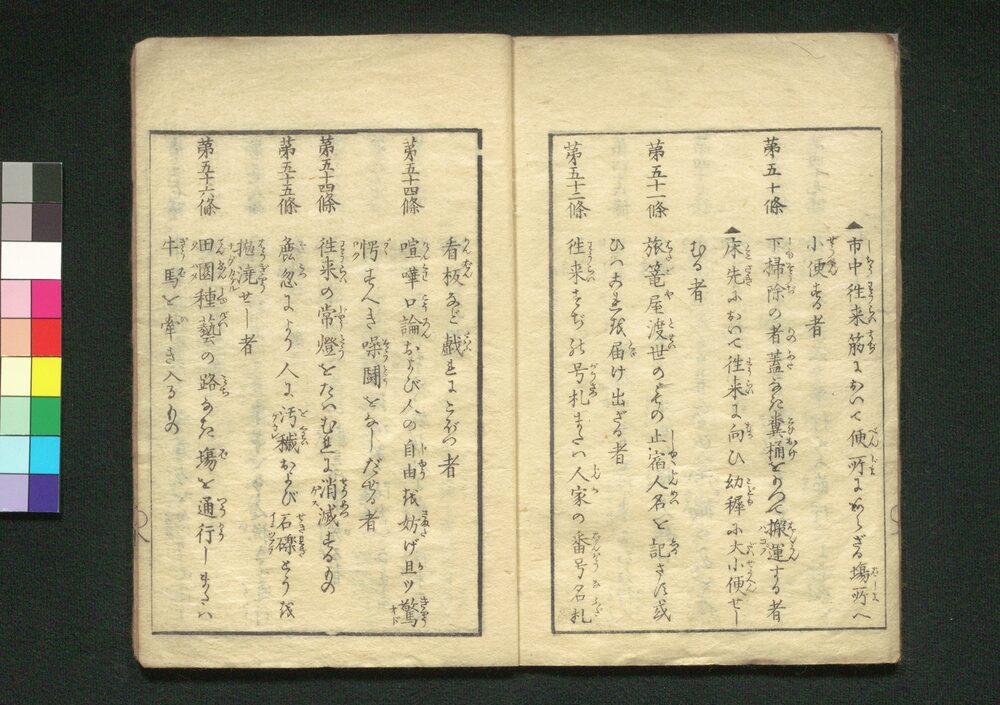 ▲市中往来筋において便所にあらざる場所へ
小便する者
第五十條 下掃除の者蓋なき糞桶をもつて搬運する者
▲床先において往来に向ひ幼穉に大小便せし
むる者
第五十一條 旅篭屋渡世のもの止宿人名を記さず或
ひハこれを届け出ざる者
第五十二條 往来すぢの号札または人家の番号名札
看板など戯れにこぼつ者
第五十四條 喧嘩口論および人の自由を妨げ且ツ驚
愕すべき噪閙をなしだせる者
第五十四條 往来の常燈をたはむれに消滅するもの
第五十五條 麁忽により人に汚穢および石礫とうを
抛澆せし者
第五十六條 田圃種藝の路なき場を通行しまたハ
牛馬を牽き入るもの